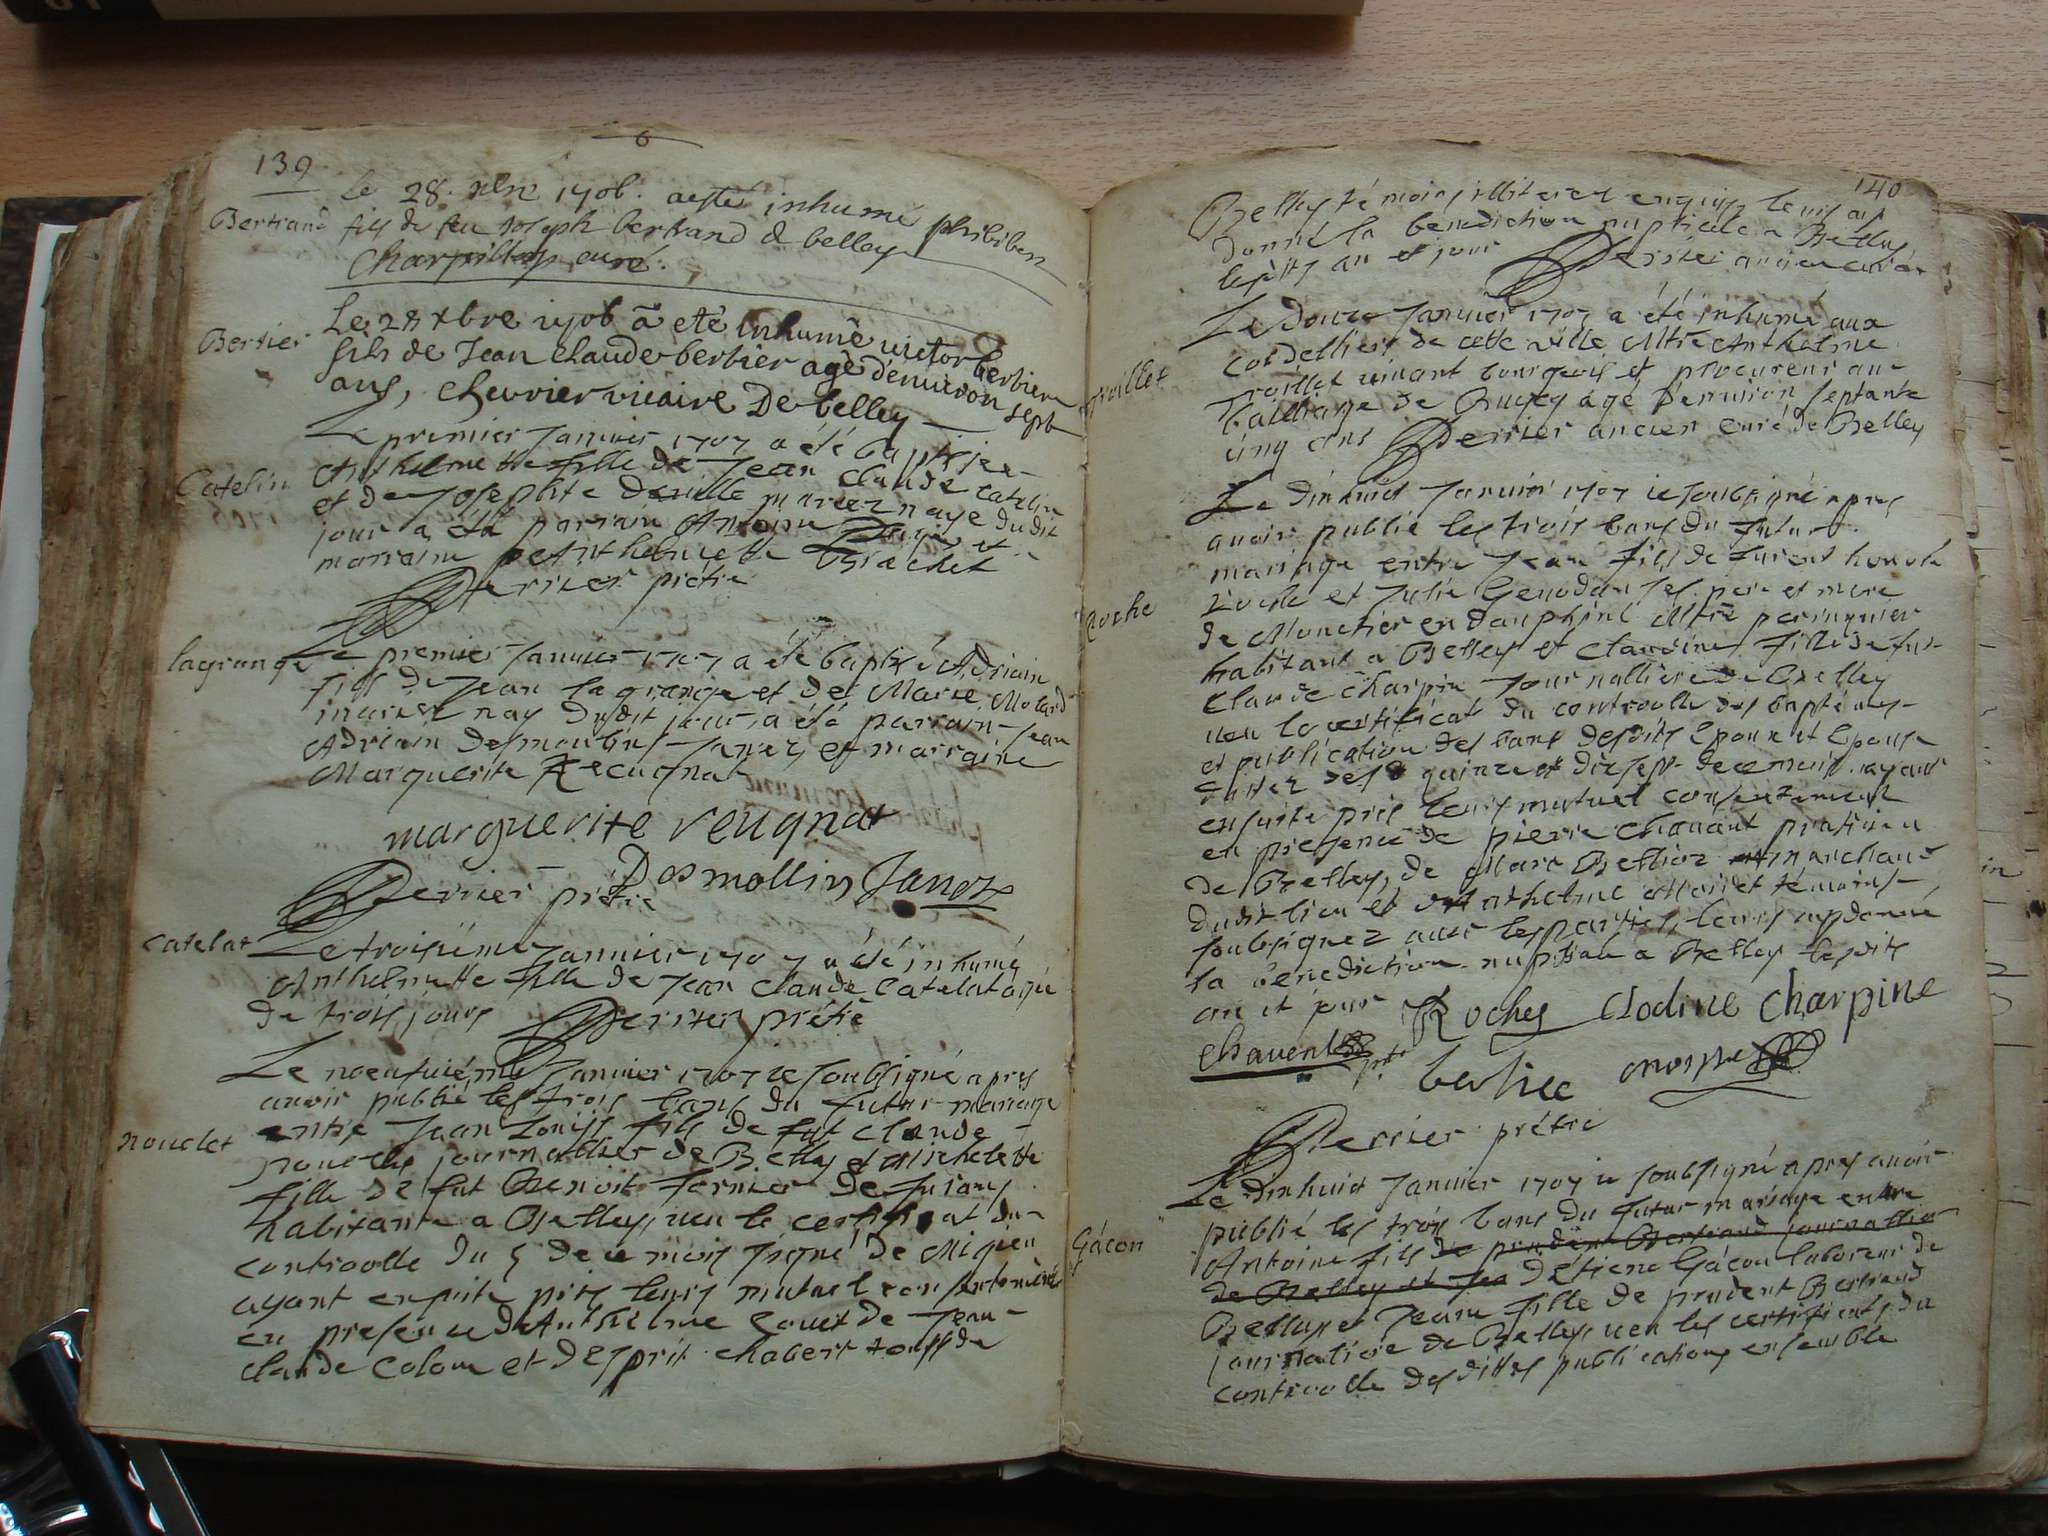 139
6
Le 28. 1706. a esté inhumé
Bertrand fils de feu Joseph bertrand de belley
Charpillon curé.
Bertier Le 28 xbre 1706 a eté inhumé victor berbier
fils de Jean Claude berbier agé denviron sept
ans, Chevrier vicaire De belley
Le premier Janvier 1707 a été baptisee
Catelin Anthelmette fille de Jean Claude Catelin
et de Josephte mariez naye dudit
jour a été parrain et
marraine Anthelmette Brachet
Perrier prétre
lagrange Le premier Janvier 1707 a été baptisé Adriain
fils de Jean la grange et de Marie Molard
mariez nay dudit jour a été parrain Jean
Adriain Desmoulins Janez et marraine
Marguerite Recugnat
marguerite reugnat
Desmollin Janez
Perrier prétre
Catelat Le troisiéme Janvier 1707 a été inhumé
Anthelmette fille de Jean Claude Catelat agée
de trois jours Perrier prétre
Le neufuiéme Janvier 1707 je soubsigné apres
avoir publié les trois bans du futur mariage
entre Jean Louis fils de fut Claude
nouclet journallier de Belley et Michelette
fille de fut Benoit fornier de
habitante a Belley, veu le certificat du
controolle du 5 de ce mois signé de Migieu
ayant ensuite pris leurs mutuel consentement
en presence
claude Colom et desprit Chabert tous de
140
Belley témoins illiterez enquis leurs ai
donné la benediction nuptiale a Belley
lesdits an et jour Perrier ancien curé
Le Douze Janvier 1707 a été inhumé aux
Cordelliers de cette ville Mtre Anthelme
Troillet vivant bourgeois et procureur au
Bailliage de Bugey agé denviron septante
cinq ans Perrier ancien curé de Belley
Le dixhuict Janvier 1707 je soubsigné apres
avoir publié les trois bans du futur
Roche mariage entre Jean fils de Laurent
Roche et Julie Genodan ses pere et mere
de Monctier en dauphiné Mtre
habitant a Belley et Claudine fille de fut
Claude Charpin Journalliere de Belley
veu le certificat du controolle des baptémes
et publication des bans desdits Epoux et Epouse
quinze et dixsept de ce mois. ayant
ensuite pris leurs mutuel consentement
en presence de pierre Chavant praticien
de Belley, de Marc Bestioz marchand
dudit lieu et Anthelme témoins
soubsignez avec les parties, leurs ay donné
la benediction nuptiale a Belley lesdits
an et jour Roches Clodine Charpine
Chavent
Perrier prétre
Le dixhuict Janvier 1707 je soubsigné apres avoir
publié les trois bans du futur mariage entre
Gácon Antoine fils de prudent Bertrand journallier
de Belley et Jea détiene Gácon laboreur de
Belley et Jeane fille de prudent Bertrand
journaliere de Belley, veu les certificats du
controolle desdittes publications ensemble